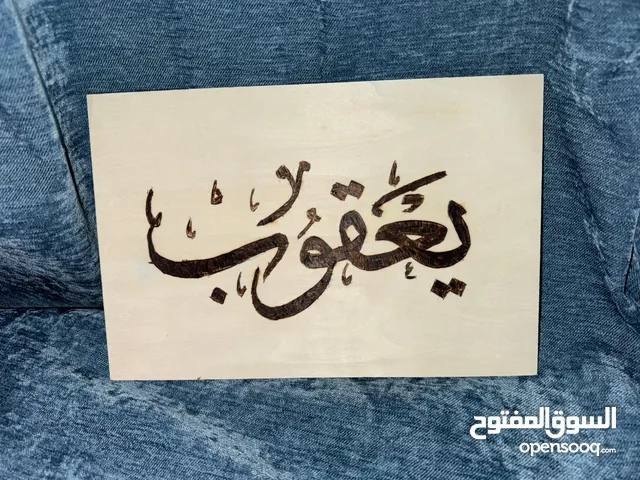 يعقوب
السوق المفتوح
opensooq.com